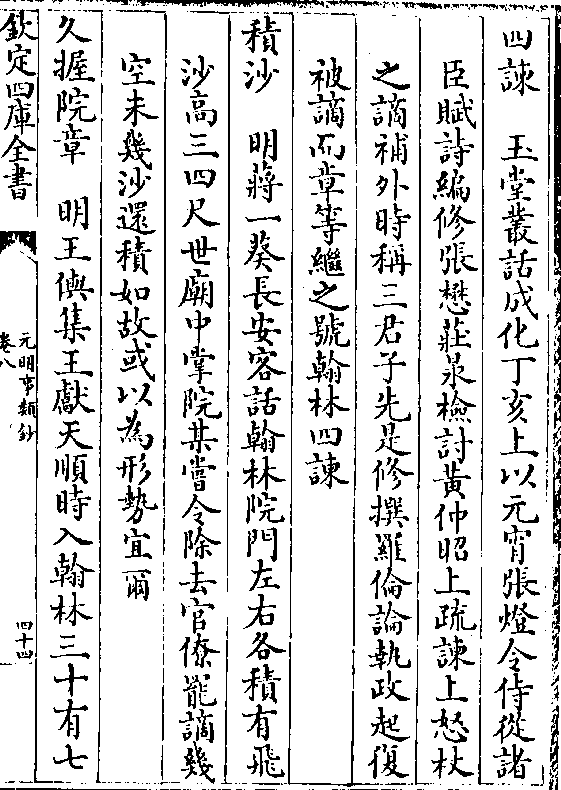 四諫　玉堂叢話成化丁亥上以元宵張燈令侍從諸
臣賦詩編修張懋莊㫤檢討黃仲昭上疏諫上怒杖
之謫補外時稱三君子先是修撰羅倫論執政起復
被謫而章等繼之號翰林四諫
積沙　明蔣一葵長安客話翰林院門左右各積有飛
沙高三四尺世廟中掌院某嘗令除去官僚罷謫幾
空未幾沙還積如故或以為形勢宜爾
久握院章　明王㒜集王獻天順時入翰林三十有七
欽定四庫全書
元明事類鈔
卷八
四十四